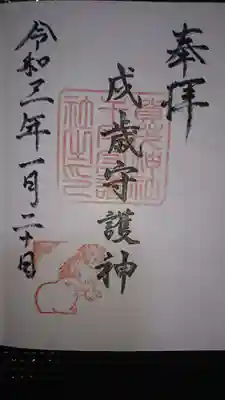 奉拝
戌歳守護神
令和三年一月二十日